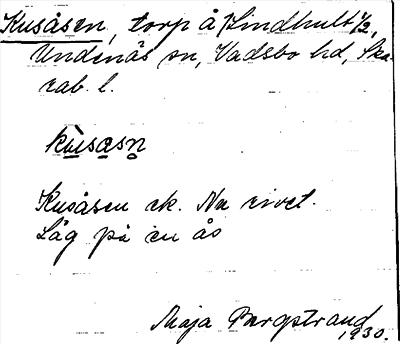 Kusåsen, torp å Sindhult 1/2,
Undenäs sn, Vadsbo hd, Ska-
rab. l.
kùsåsn̥
Kusåsen ek. Nu rivet.
Låg på en ås
Maja Bergstrand
1930.